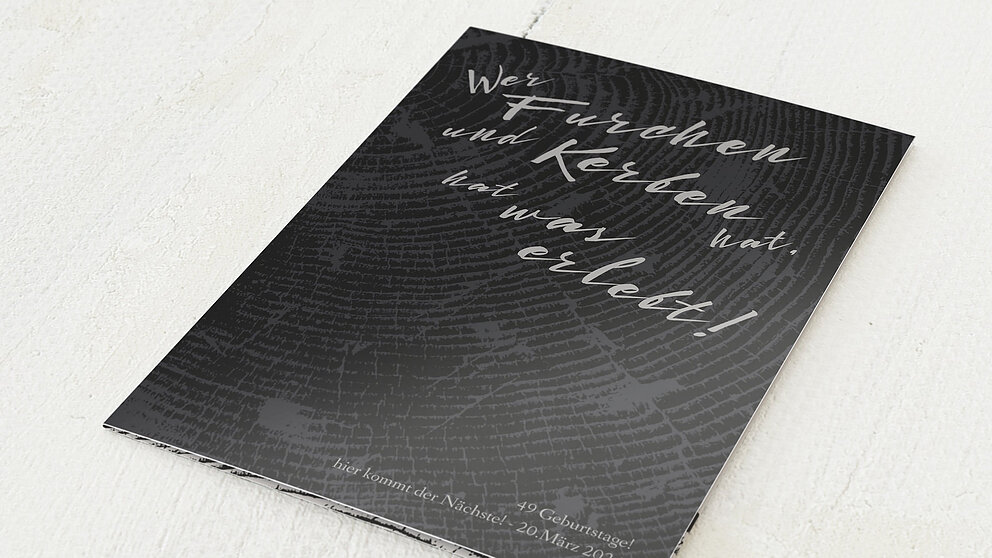 Wer
Furchen
und Kerben
hat,
hat was
erlebt!
49 Geburtstage!
hier kommt der Nächste! - 20.März